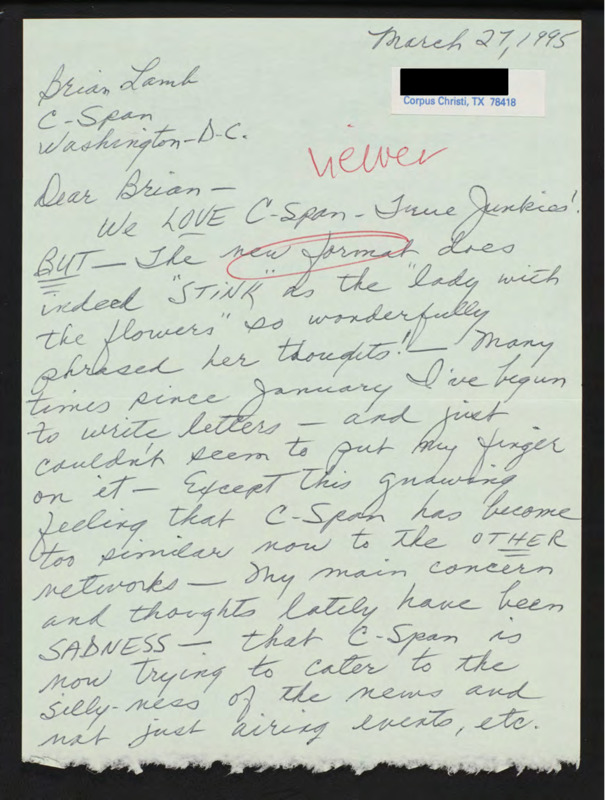 March 27, 1995
Corpus Christi, TX 78418
Brian Lamb
C-Span
Washington-D.C.
viewer
Dear Brian-
We LOVE C-Span - True Junkies!
BUT - The new format does
indeed "STINK" as the "lady with
the flowers" so wonderfully
phrased her thoughts! - Many
times since January I've begun
to write letters - and just
couldn't seem to put my finger
on it - Except this gnawing
feeling that C-Span has become
too similar now to the OTHER
networks - My main concern
and thoughts lately have been
SADNESS - that C-Span is
now trying to cater to the
silly-ness of the news and
not just airing events, etc.